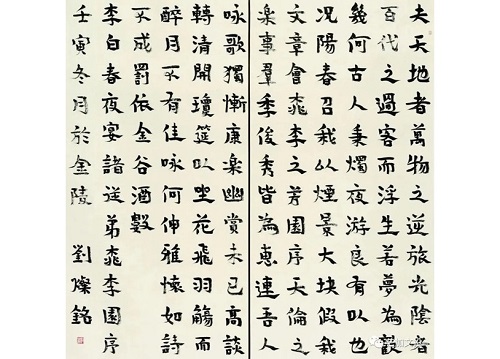 夫天地者萬物之逆旅光陰者
百代之過客而浮生若夢為歡
幾何古人秉燭夜游良有以也
況陽春召我以煙景大塊假我
文章會桃李之芳園序天倫之
樂事羣季俊秀皆為惠連吾人
咏歌獨慚康樂幽賞未已高談
轉清開瓊筵以坐花飛羽觴而
醉月不有佳咏何伸雅懷如詩
不成罰依金谷酒數
李白春夜宴諸從弟桃李園序
壬寅冬月於金陵 劉燦銘